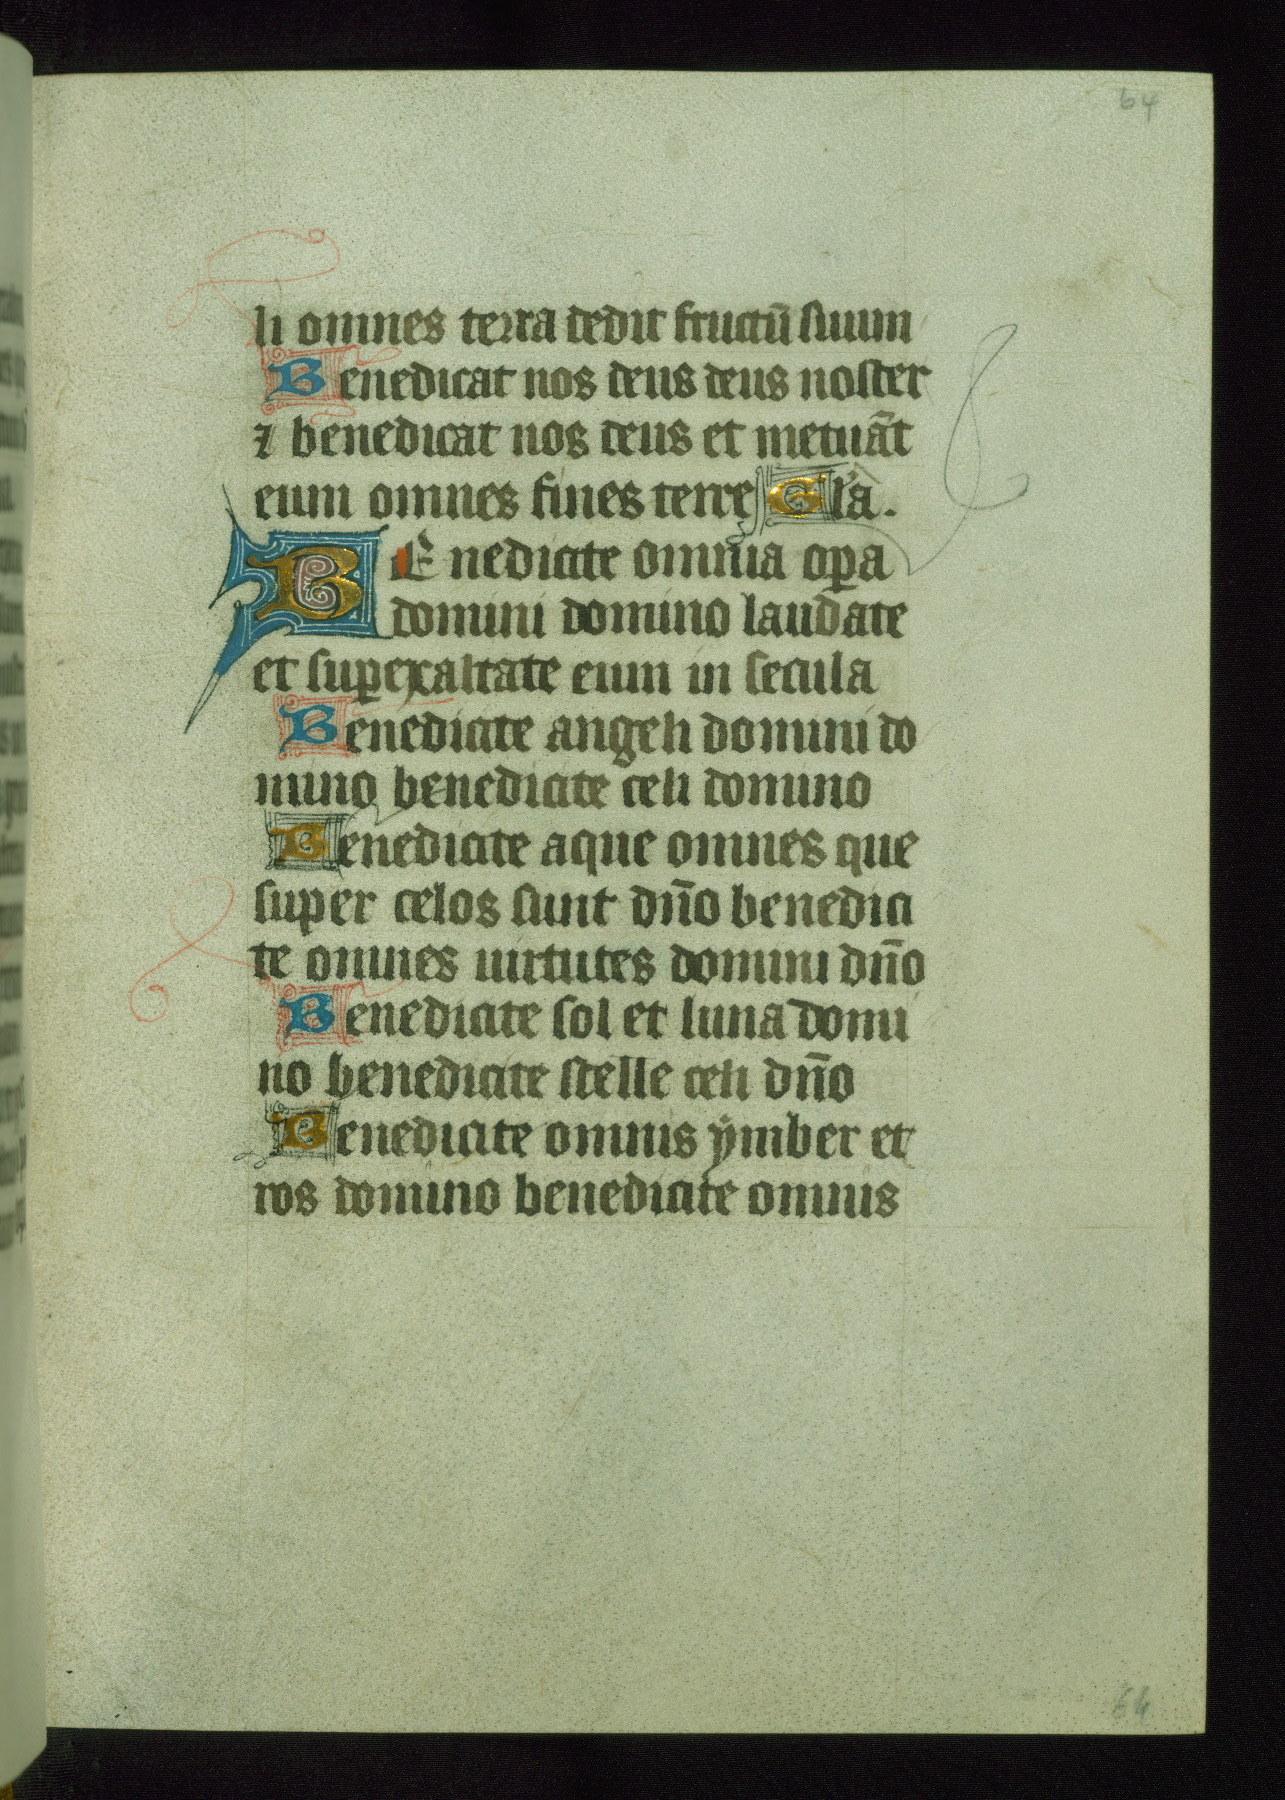 64
li omnes terra dedit fructū suum
Benedicat nos deus deus noster
⁊ benedicat nos deus et metuāt
eum omnes fines terre Gl'a.
BEnedicite omnia oꝑa
domini domino laudate
et suꝑexaltate eum in secula
Benedicite angeli domini do
mino benedicite celi domino
Benedicite aque omnes que
super celos sunt dn̄o benedici
te omnes uirtutes domini dn̄o
Benedicite sol et luna domi
no benedicite stelle celi dn̄o
Benedicite omnis ymber et
ros domino benedicite omnis
64